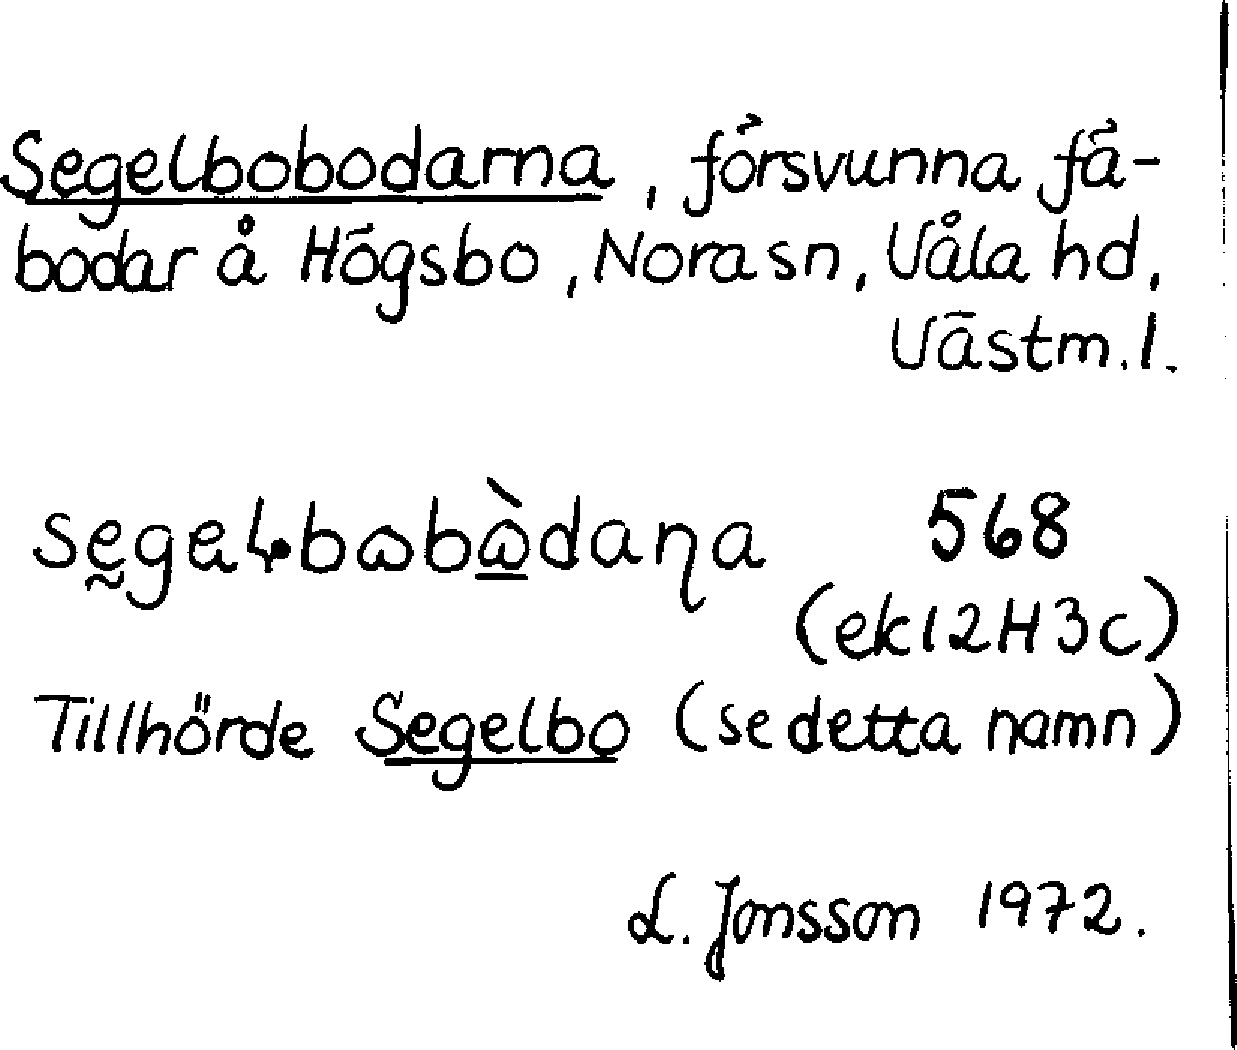 Segelbobodarna, försvunna fä-
bodar å Högsbo, Nora sn, Våla hd,
Västm. l.
568
(ek 12H3c)
Tillhörde Segelbo (se detta namn)
L. Jonsson 1972.